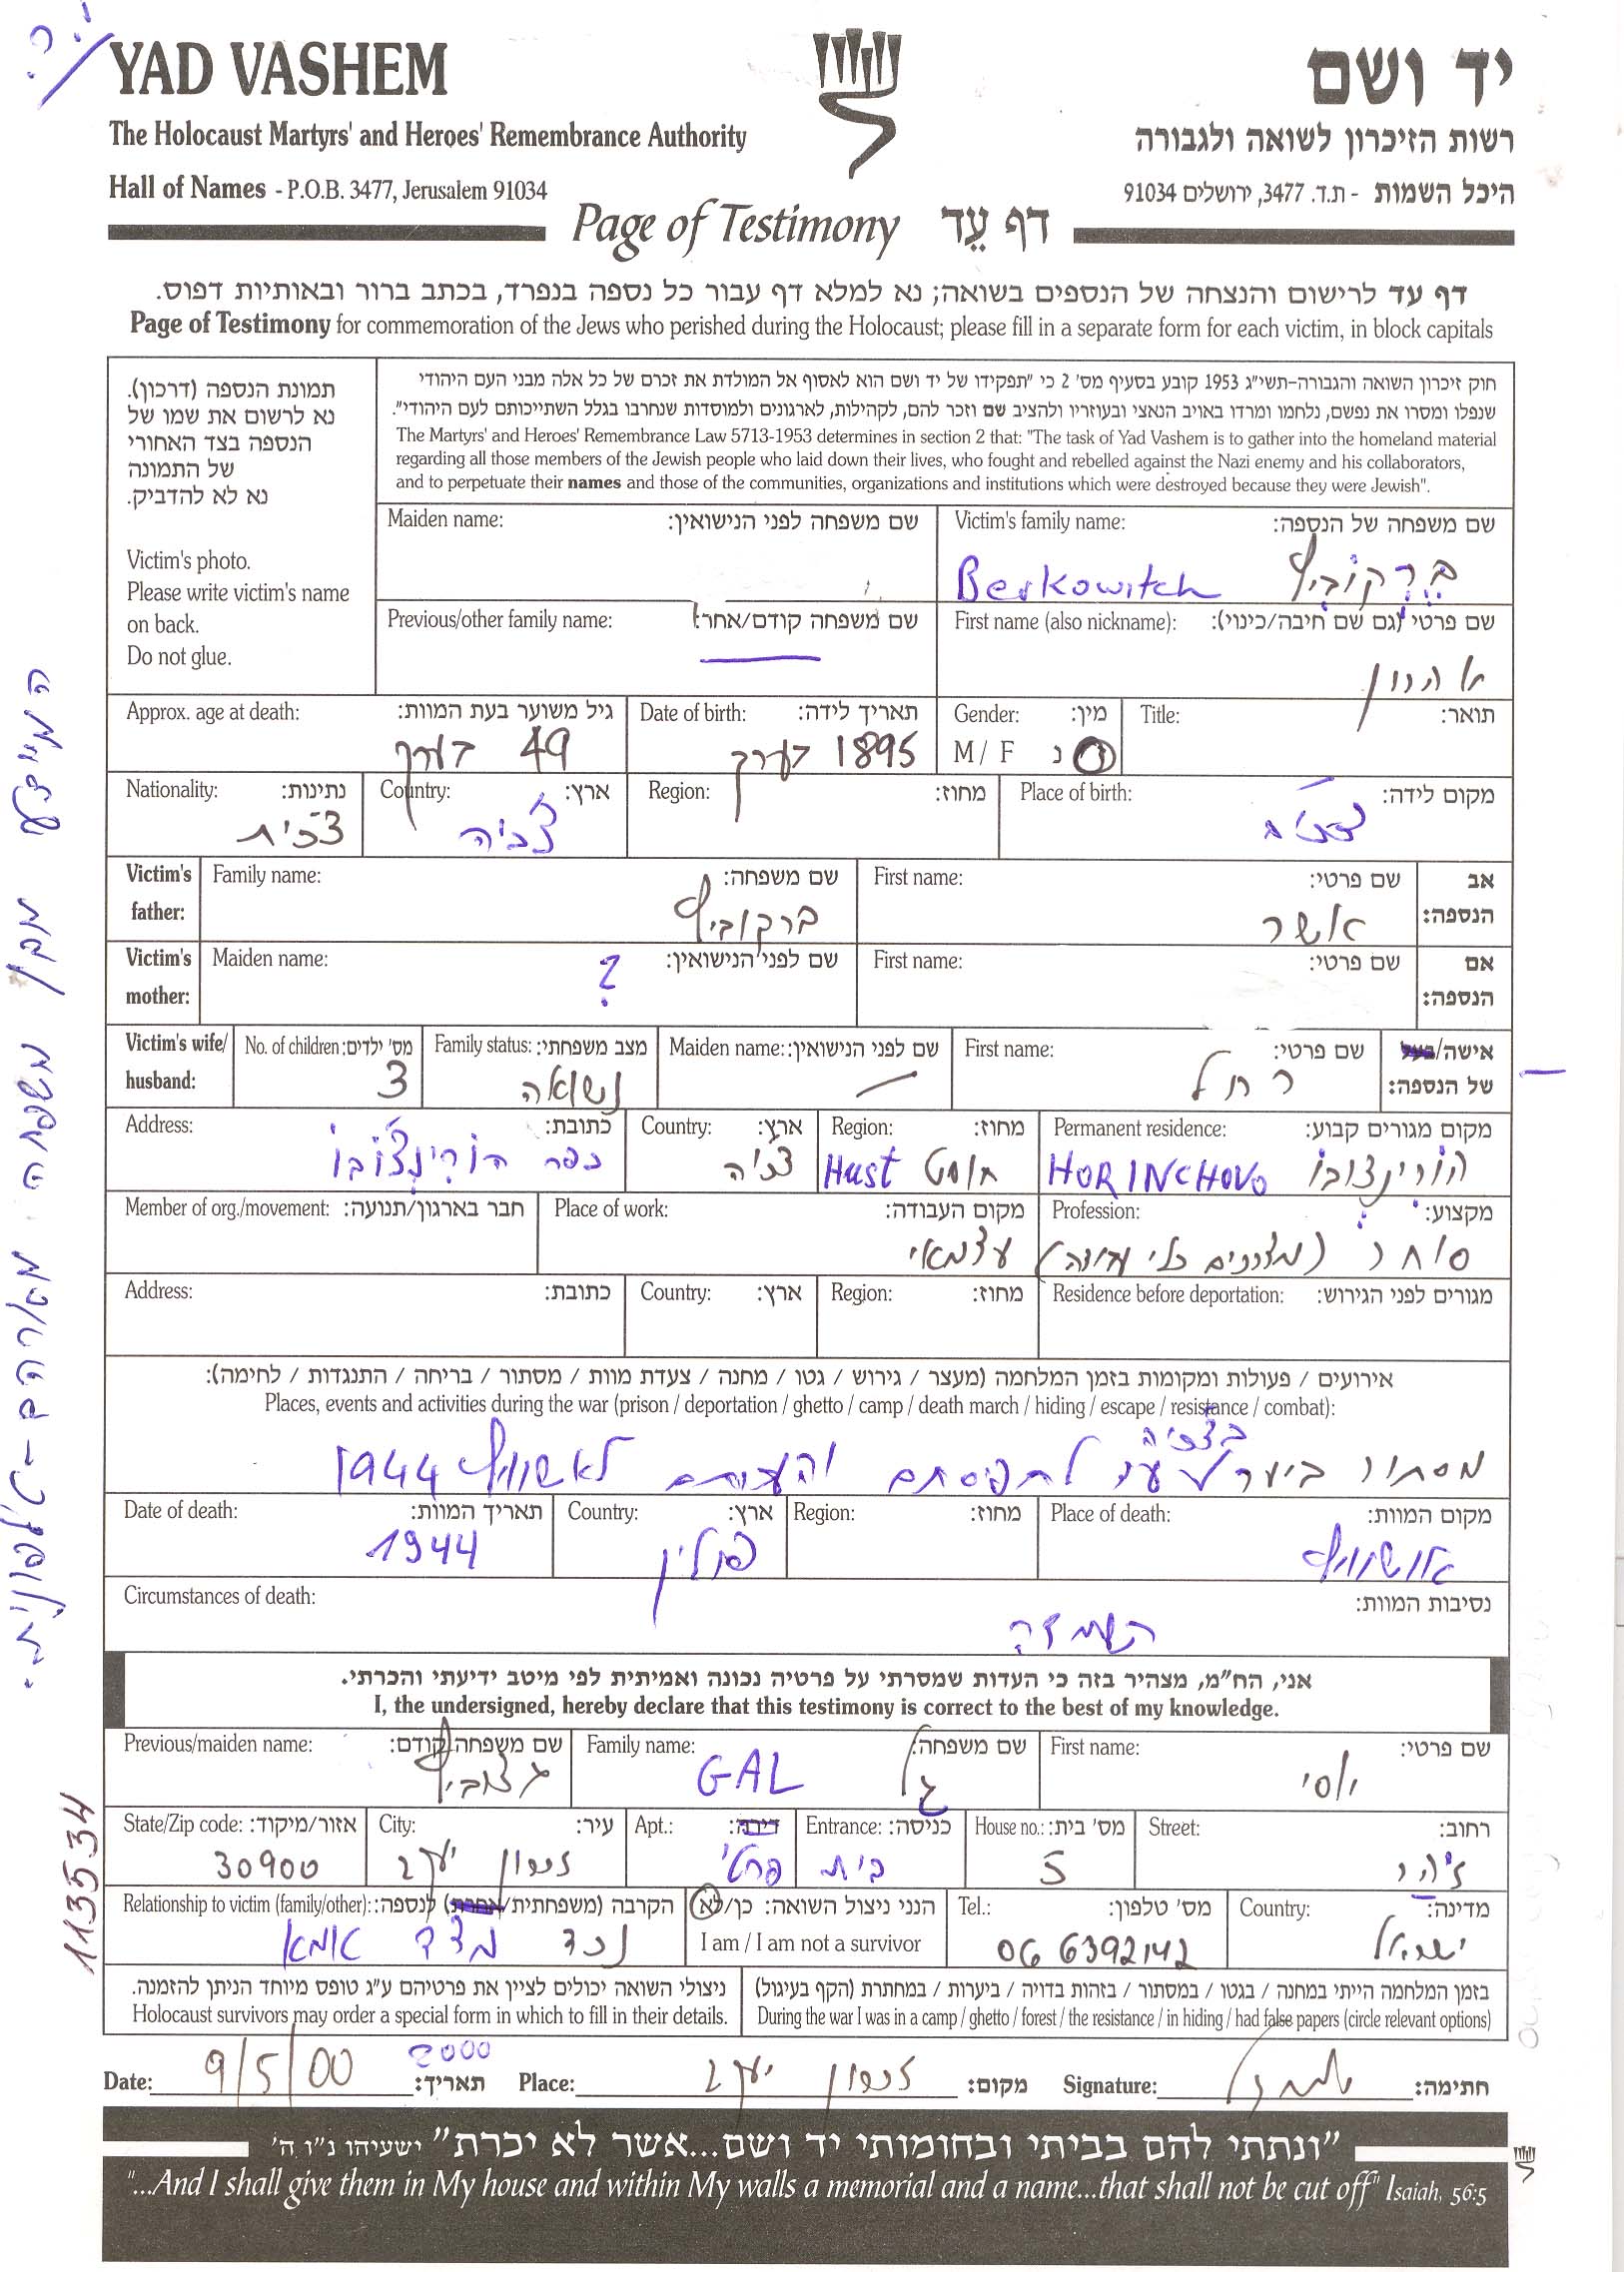 YAD VASHEM
יד ושם
The Holocaust Martyrs' and Heroes' Remembrance Authority
רשות הזיכרון לשואה ולגבורה
Hall of Names - P.O.B. 3477, Jerusalem 91034
היכל השמות - ת.ד. 3477, ירושלים 91034
Page of Testimony דף עֵד
דף עד לרישום והנצחה של הנספים בשואה; נא למלא דף עבור כל נספה בנפרד, בכתב ברור ובאותיות דפוס.
Page of Testimony for commemoration of the Jews who perished during the Holocaust; please fill in a separate form for each victim, in block capitals
תמונת הנספה (דרכון).
נא לרשום את שמו של
הנספה בצד האחורי
של התמונה
נא לא להדביק.
Victim's photo.
Please write victim's name
on back.
Do not glue.
חוק זיכרון השואה והגבורה-תשי"ג 1953 קובע בסעיף מס' 2 כי "תפקידו של יד ושם הוא לאסוף אל המולדת את זכרם של כל אלה מבני העם היהודי
שנפלו ומסרו את נפשם, נלחמו ומרדו באויב הנאצי ובעוזריו ולהציב שם וזכר להם, לקהילות, לארגונים ולמוסדות שנחרבו בגלל השתייכותם לעם היהודי".
The Martyrs' and Heroes' Remembrance Law 5713-1953 determines in section 2 that: "The task of Yad Vashem is to gather into the homeland material
regarding all those members of the Jewish people who laid down their lives, who fought and rebelled against the Nazi enemy and his collaborators,
and to perpetuate their names and those of the communities, organizations and institutions which were destroyed because they were Jewish".
Maiden name: שם משפחה לפני הנישואין:
Victim's family name: שם משפחה של הנספה:
Berkowitch ברקוביץ
Previous/other family name: שם משפחה קודם/אחר:
First name (also nickname): שם פרטי (גם שם חיבה/כינוי):
אהרון
Approx. age at death: גיל משוער בעת המוות:
49 בערך
Date of birth: תאריך לידה:
1895 בערך
Gender: מין:
M / F ז נ
Title: תואר:
Nationality: נתינות:
צ'כית
Country: ארץ:
צ'כיה
Region: מחוז:
Place of birth: מקום לידה:
Victim's father:
Family name: שם משפחה:
ברקוביץ
First name: שם פרטי:
אשר
אב הנספה:
Victim's mother:
Maiden name: שם לפני הנישואין:
?
First name: שם פרטי:
אם הנספה:
Victim's wife/ husband:
No. of children: מס' ילדים:
3
Family status: מצב משפחתי:
נשואה
Maiden name: שם לפני הנישואין:
First name: שם פרטי:
רחל
אישה/בעל של הנספה:
Address: כתובת:
כפר הורינצ'ובו
Country: ארץ:
צ'כיה
Region: מחוז:
Hust חוסט
Permanent residence: מקום מגורים קבוע:
HORINCHOVO הורינצ'ובו
Member of org./movement: חבר בארגון/תנועה:
Place of work: מקום העבודה:
עצמאי
Profession: מקצוע:
סוחר (מצרכים כלי עבודה)
Address: כתובת:
Country: ארץ:
Region: מחוז:
Residence before deportation: מגורים לפני הגירוש:
אירועים / פעולות ומקומות בזמן המלחמה (מעצר / גירוש / גטו / מחנה / צעדת מוות / מסתור / בריחה / התנגדות / לחימה):
Places, events and activities during the war (prison / deportation / ghetto / camp / death march / hiding / escape / resistance / combat):
בצ'כיה
מסתור ביער עד לתפיסתם והעברתם לאשוויץ 1944
Date of death: תאריך המוות:
1944
Country: ארץ:
פולין
Region: מחוז:
Place of death: מקום המוות:
אושוויץ
Circumstances of death: נסיבות המוות:
השמדה
אני, הח"מ, מצהיר בזה כי העדות שמסרתי על פרטיה נכונה ואמיתית לפי מיטב ידיעתי והכרתי.
I, the undersigned, hereby declare that this testimony is correct to the best of my knowledge.
Previous/maiden name: שם משפחה קודם:
Family name: שם משפחה:
GAL גל
First name: שם פרטי:
יוסי
State/Zip code: אזור/מיקוד:
30900
City: עיר:
זכרון יעקב
Apt.: דירה:
Entrance: כניסה:
בית פרטי
House no.: מס' בית:
5
Street: רחוב:
Relationship to victim (family/other): הקרבה (משפחתית/אחרת) לנספה:
נכד מצד אמא
הנני ניצול השואה: כן/לא
I am / I am not a survivor
Tel.: מס' טלפון:
06 6392142
Country: מדינה:
ישראל
ניצולי השואה יכולים לציין את פרטיהם ע"ג טופס מיוחד הניתן להזמנה.
Holocaust survivors may order a special form in which to fill in their details.
בזמן המלחמה הייתי במחנה / בגטו / במסתור / בזהות בדויה / ביערות / במחתרת (הקף בעיגול)
During the war I was in a camp / ghetto / forest / the resistance / in hiding / had false papers (circle relevant options)
2000
Date: 9/5/00 תאריך:
Place: זכרון יעקב מקום:
Signature: חתימה:
"ונתתי להם בביתי ובחומותי יד ושם...אשר לא יכרת" ישעיהו נ"ו ה'
"...And I shall give them in My house and within My walls a memorial and a name...that shall not be cut off" Isaiah, 56:5
113534